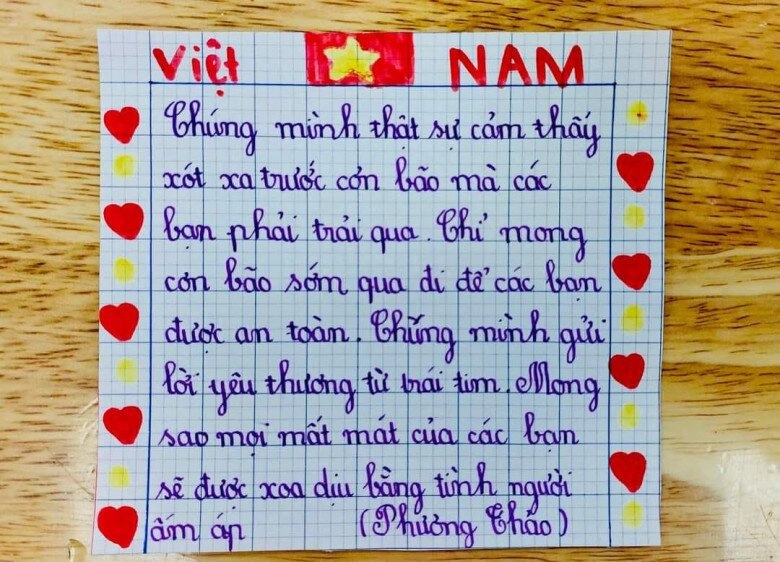 Việt NAM
Chúng mình thật sự cảm thấy
xót xa trước cơn bão mà các
bạn phải trải qua. Chỉ mong
cơn bão sớm qua đi để các bạn
được an toàn. Chúng mình gửi
lời yêu thương từ trái tim. Mong
sao mọi mất mát của các bạn
sẽ được xoa dịu bằng tình người
ấm áp (Phương Thảo)